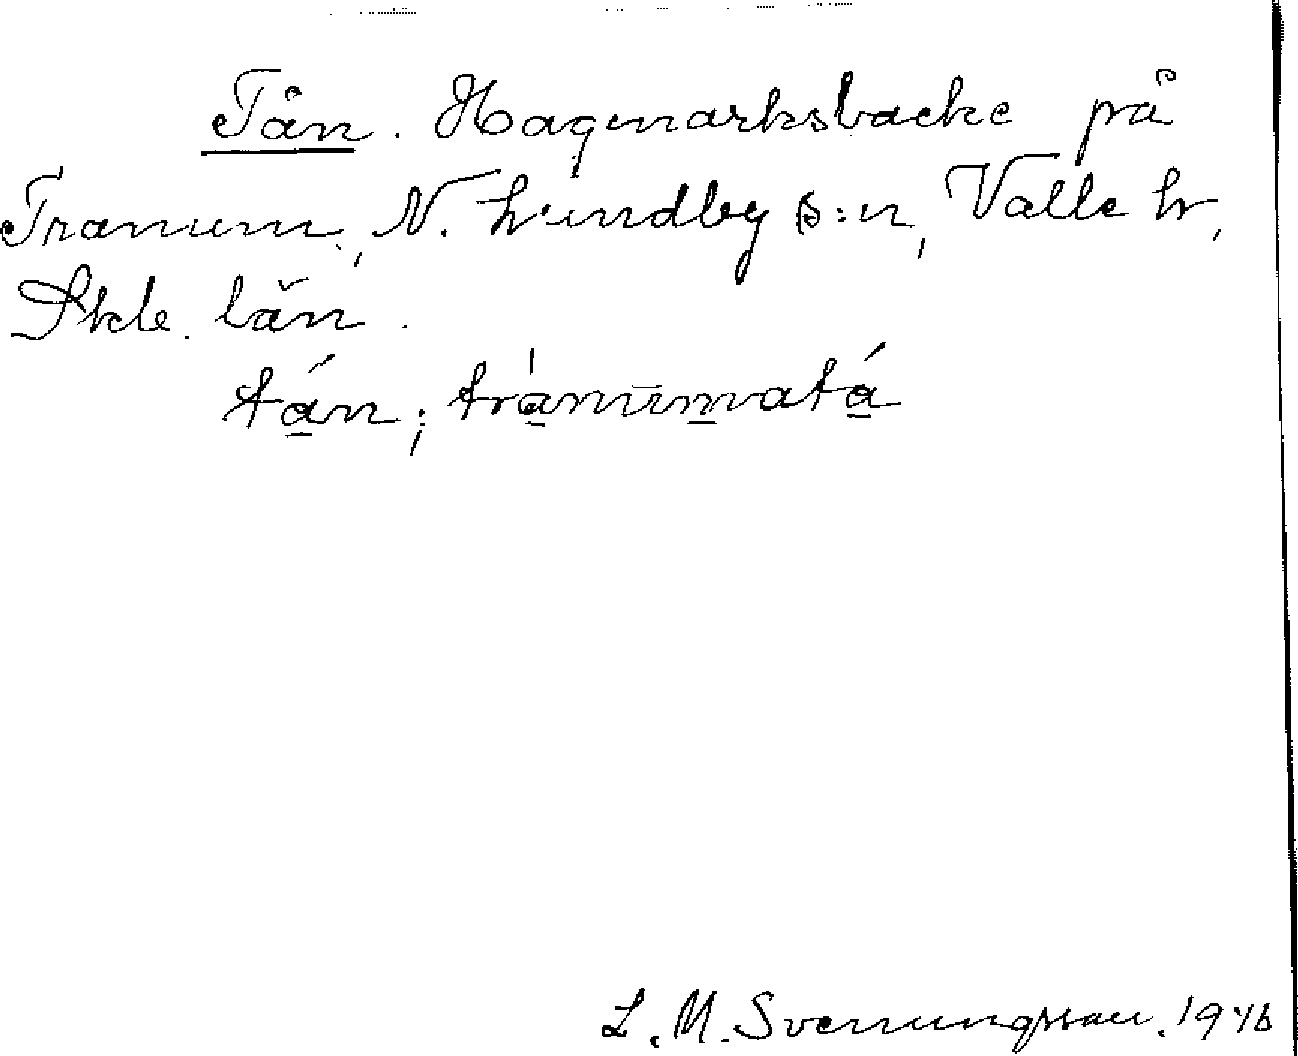 Tån. Hagmarksbacke på
Tranum, N. Lundby s:n, Valle hr,
Skb. län.
tán; tránummatá
L. M. Svenungsson. 1946